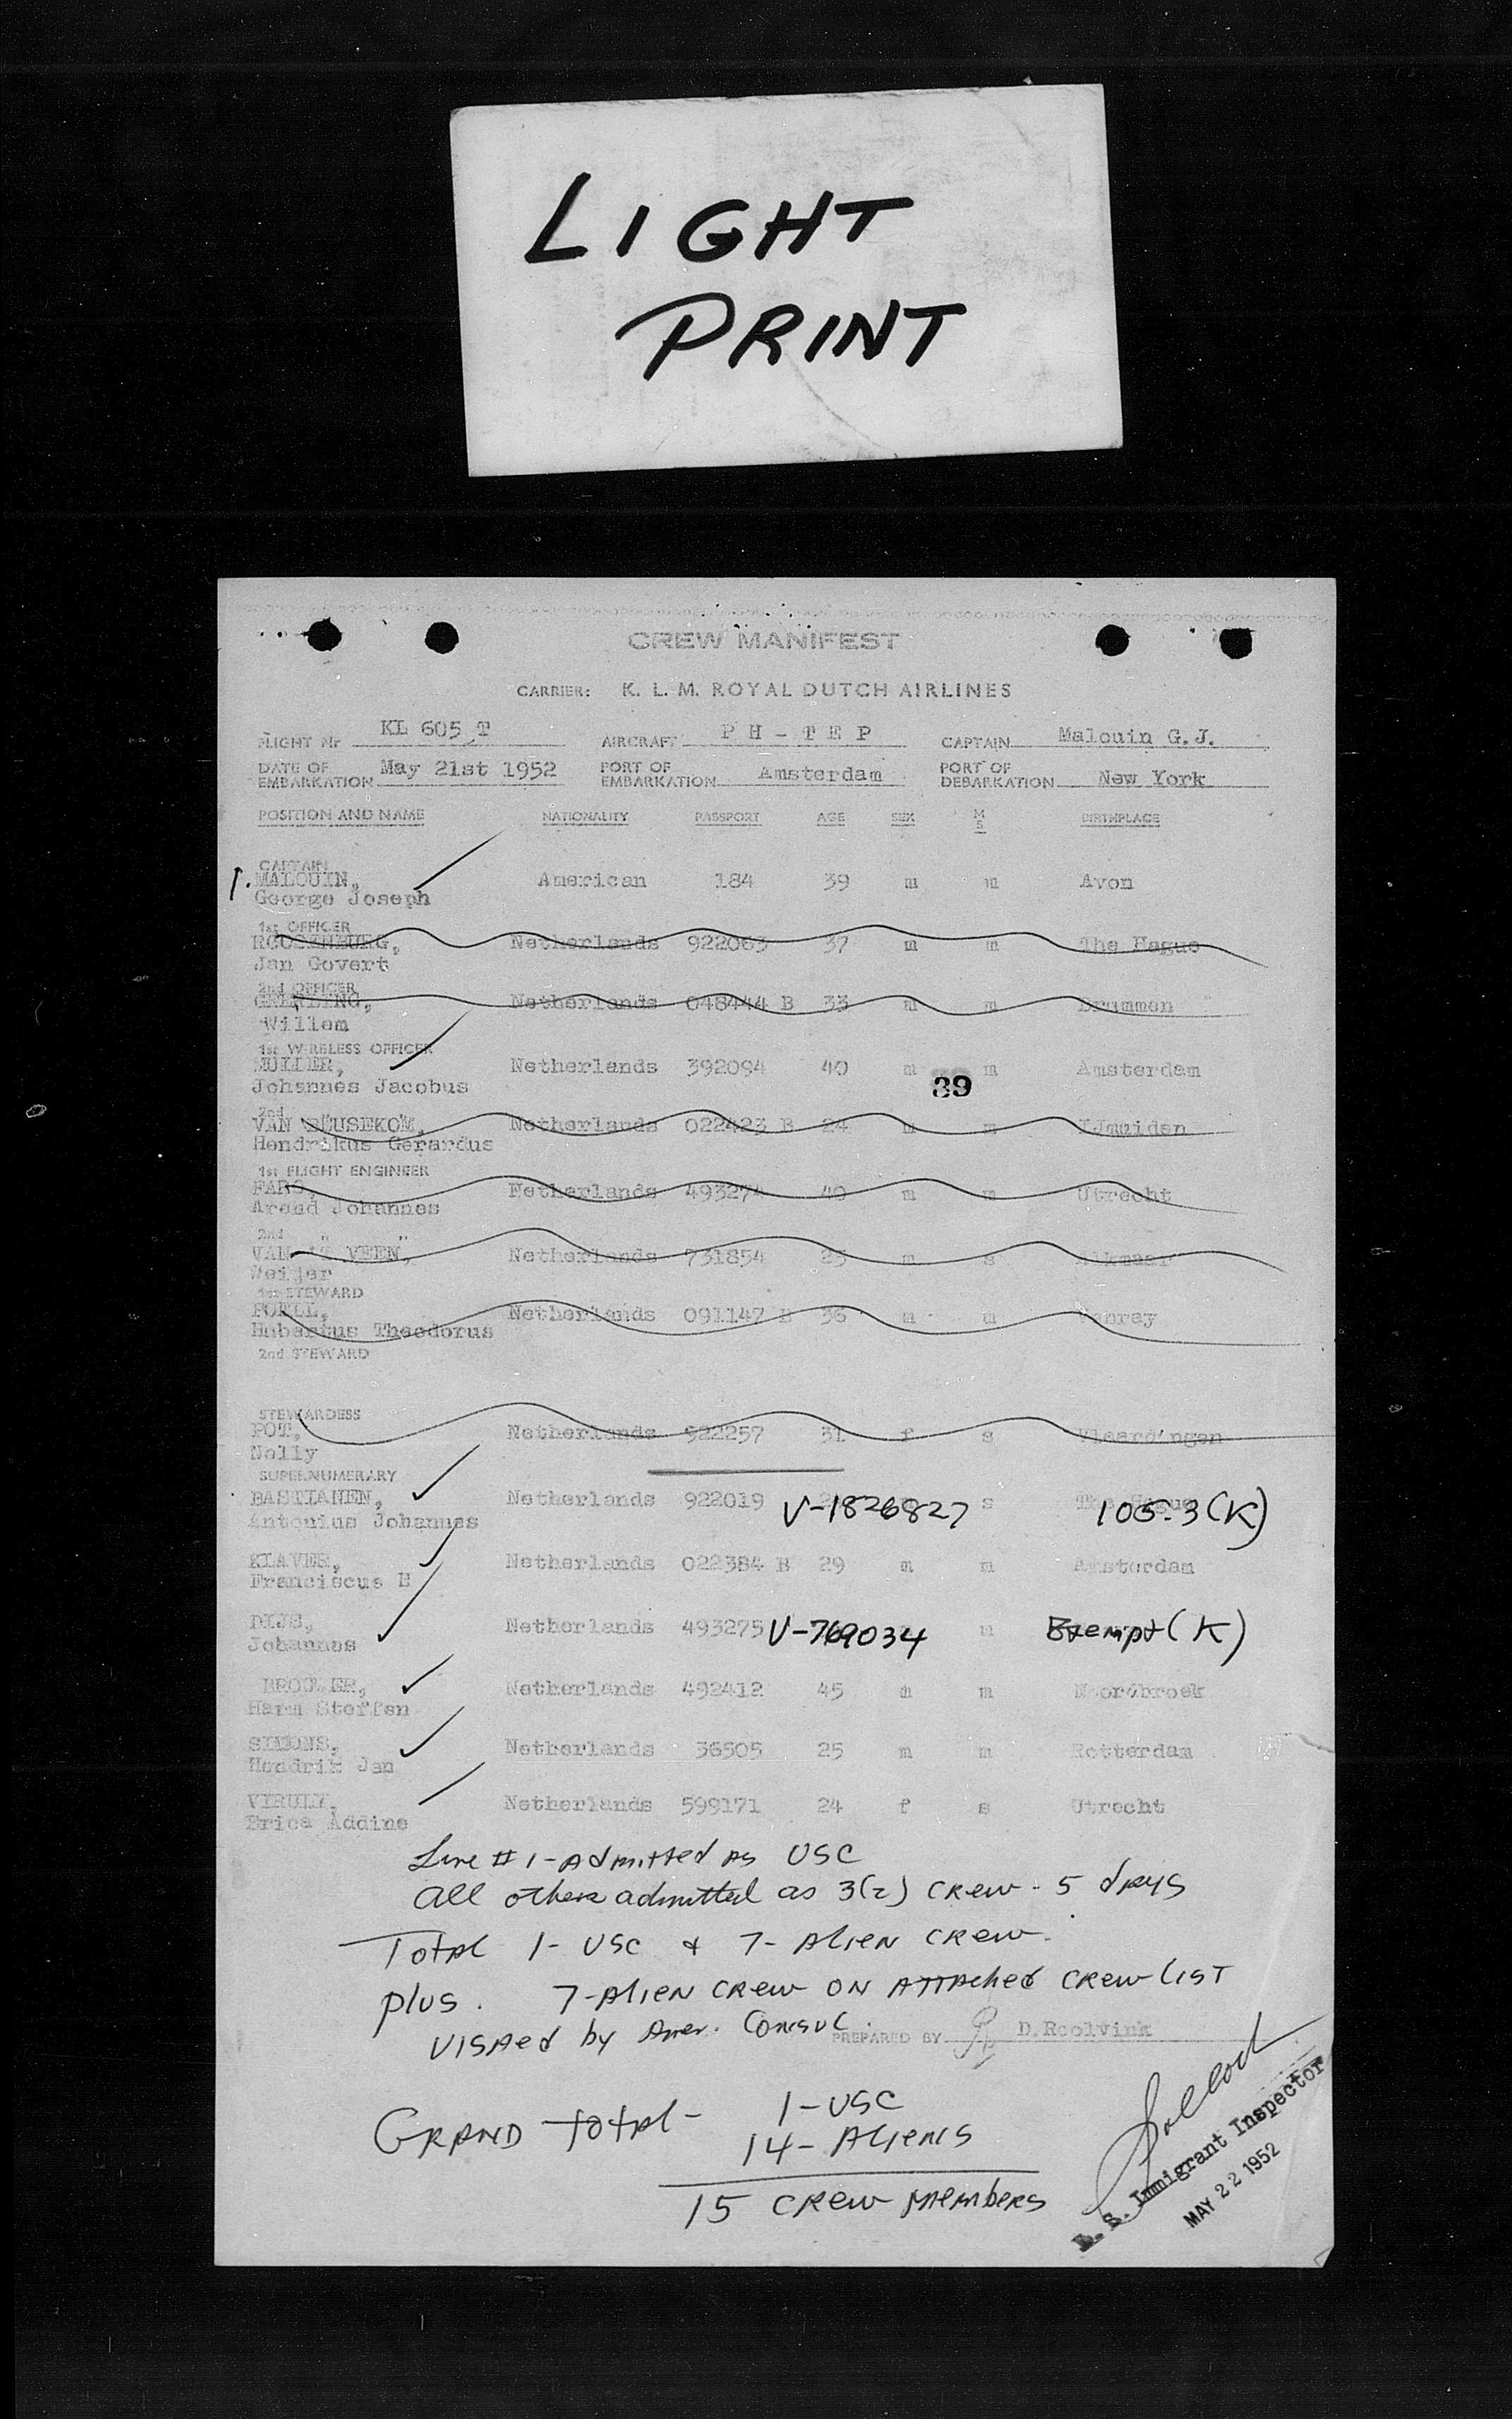 LIGHT
PRINT
CREW MANIFEST
CARRIER: K. L. M. ROYAL DUTCH AIRLINES
FLIGHT Nr KL 605 T AIRCRAFT P H - T E P CAPTAIN Malouin G.J.
DATE OF EMBARKATION May 21st 1952 PORT OF EMBARKATION Amsterdam PORT OF DEBARKATION New York
POSITION AND NAME NATIONALITY PASSPORT AGE SEX M S BIRTHPLACE
CAPTAIN
1. MALOUIN, American 184 39 m m Avon
George Joseph
1st OFFICER
Netherlands 922063 37 m m The Hague
Jan Govert
2nd OFFICER
Netherlands 048444 B 33 m m Brummen
Willem
1st WIRELESS OFFICER
MULLER, Netherlands 392094 40 m m Amsterdam
Johannes Jacobus
39
2nd " "
VAN BEUSEKOM, Netherlands 022423 B 24 m m IJmuiden
Hendrikus Gerardus
1st FLIGHT ENGINEER
Netherlands 493274 40 m m Utrecht
Arend Johannes
2nd " "
VAN 'T VEEN, Netherlands 731854 25 m s Alkmaar
Meijer
1st STEWARD
Netherlands 091147 B 36 m m Venray
Hubertus Theodorus
2nd STEWARD
STEWARDESS
POT, Netherlands 922257 31 f s Vlaardingen
Nelly
SUPERNUMERARY
BASTIANEN, Netherlands 922019 V-1826827 s The Hague 105.3(K)
Antonius Johannes
KLAVER, Netherlands 022384 B 29 m m Amsterdam
Franciscus H
DIJS, Netherlands 493275 V-769034 m Exempt (K)
Johannes
BROUWER, Netherlands 492412 45 m m Noordbroek
Harm Steffen
SIMONS, Netherlands 36505 25 m m Rotterdam
Hendrik Jan
VIRULY, Netherlands 599171 24 f s Utrecht
Erica Addine
Line # 1 - Admitted as USC
All others admitted as 3(2) crew - 5 days
Total 1 - USC & 7 - Alien crew.
plus. 7 - Alien crew on attached crew list
visaed by Amer. Consul.
PREPARED BY D. Roolvink
Grand total - 1 - USC
14 - Aliens
15 crew members
U. S. Immigrant Inspector
MAY 22 1952